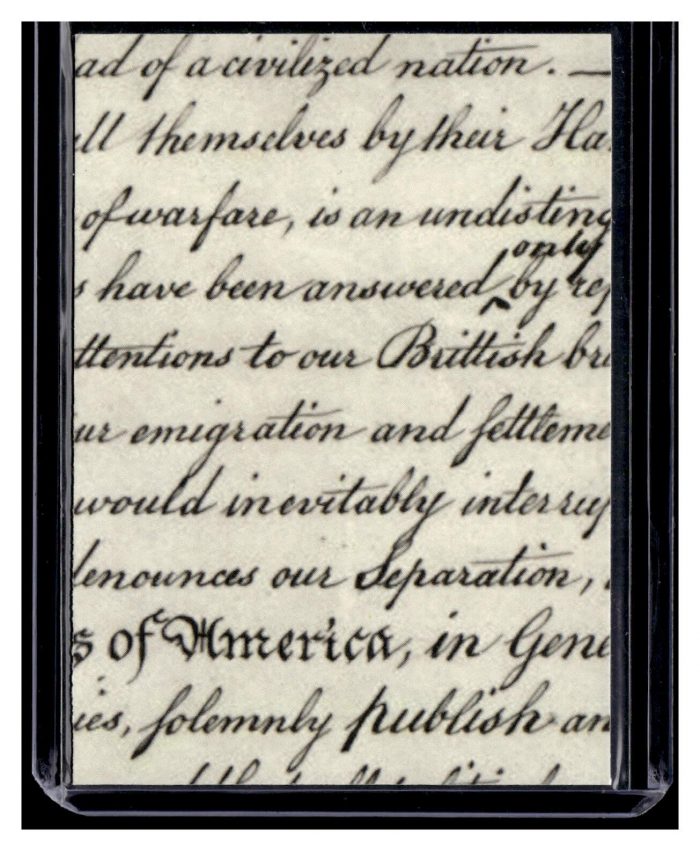 ad of a civilized nation. —
ll themselves by their Ha
of warfare, is an undisting
only
s have been answered ‸ by rep
ttentions to our Brittish br
ur emigration and settleme
would inevitably interrup
enounces our Separation,
s of America, in Gene
ies, solemnly publish an